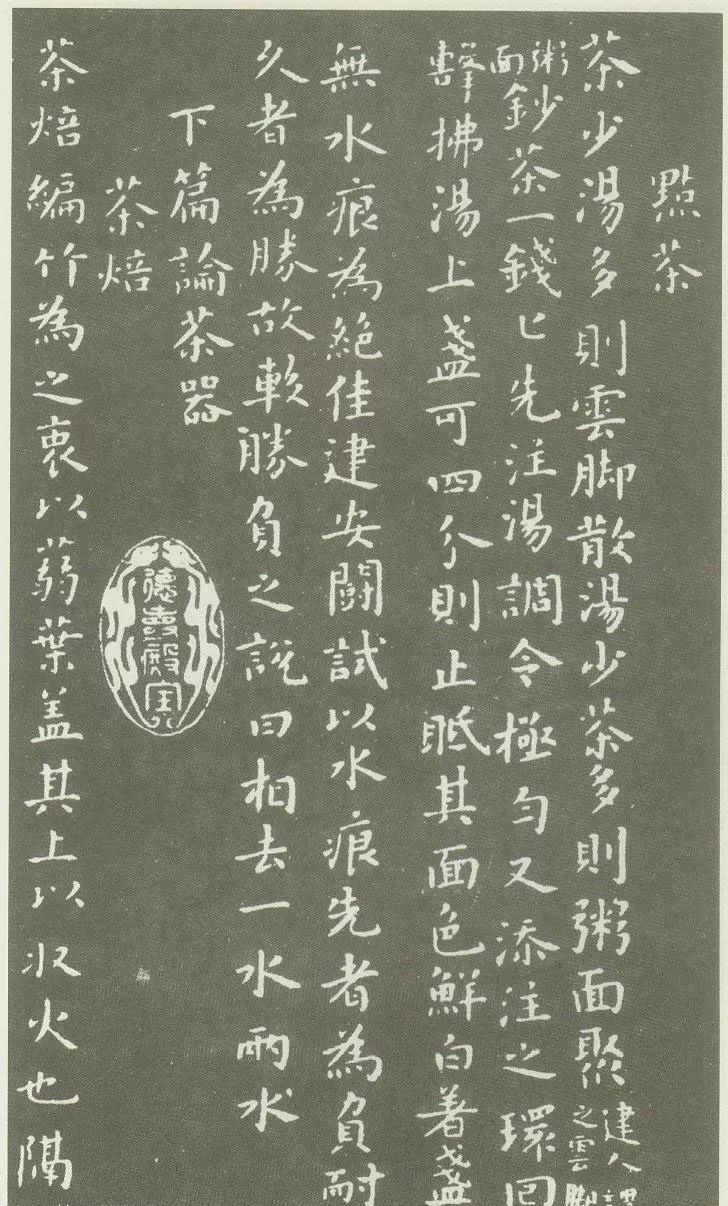 點茶
茶少湯多則雲脚散湯少茶多則粥面聚建人謂之雲脚
粥面鈔茶一錢匕先注湯調令極匀又添注之環回
擊拂湯上盞可四分則止眡其面色鮮白著盞
無水痕為絶佳建安鬭試以水痕先者為負耐
久者為勝故較勝負之說曰相去一水兩水
下篇論茶器
茶焙
德壽殿寶
茶焙編竹為之裹以蒻葉盖其上以収火也隔